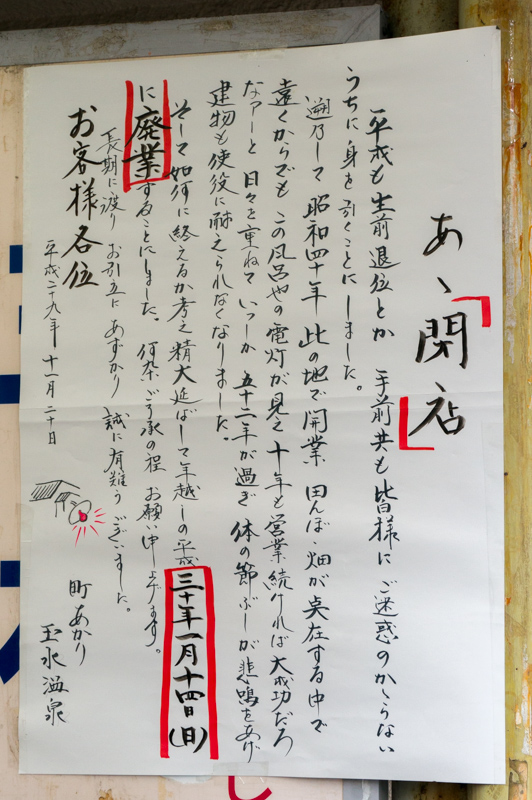 あゝ「閉店」
平成も生前退位とか 手前共も皆様にご迷惑のかゝらない
うちに身を引くことにしました。
遡りして 昭和四十年 此の地で開業 田んぼ・畑が点在する中で
遠くからでも この風呂やの電灯が見え 十年も営業続ければ大成功だろ
なァーと 日々を重ねて いつしか 五十二年が過ぎ 体の節ぶしが悲鳴をあげ
建物も使役に耐えられなくなりました。
そして如何に終えるか考え 精大延ばして年越しの平成三十年一月十四日(日)
に廃業することにしました。 何卒ご了承の程 お願い申上げます。
長期に渡り お引立に あずかり 誠に有難う ございました。
お客様各位
平成二十九年 十一月二十日
町あかり
玉水温泉